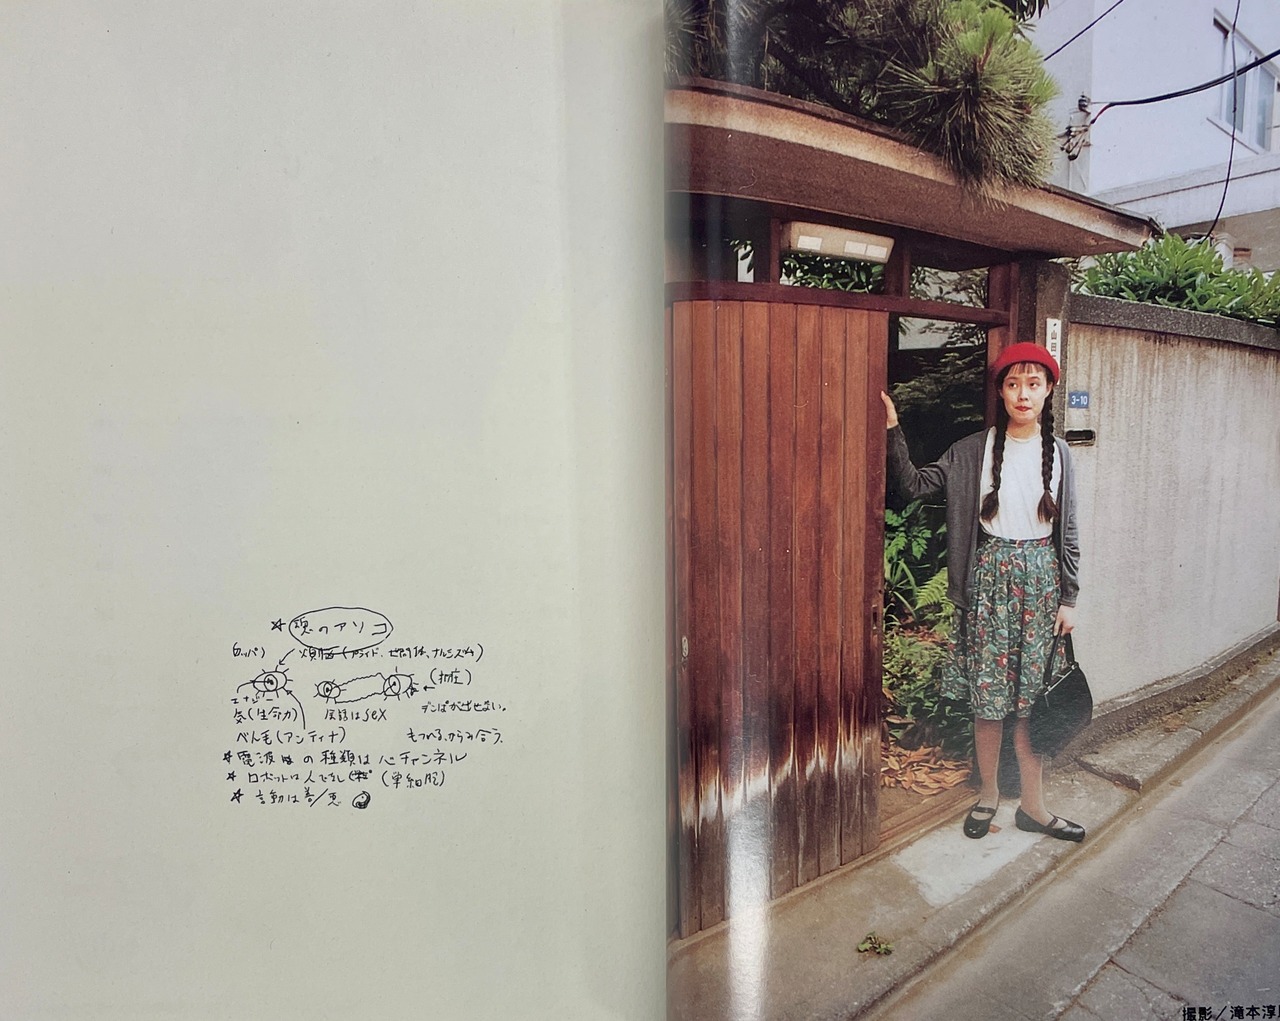 ☆ 魂のアソコ
煩悩(プライド、ナルシズム)
(抑圧)
エナジー
気(生命力)
会話はSEX
デンぱが出せない。
べん毛(アンテナ)
もつれる、からみ合う。
★電波の種類は心チャンネル
★ ロボットは人でなし(単細胞)
☆ 言動は善/悪
山田
3-10
撮影/滝本淳